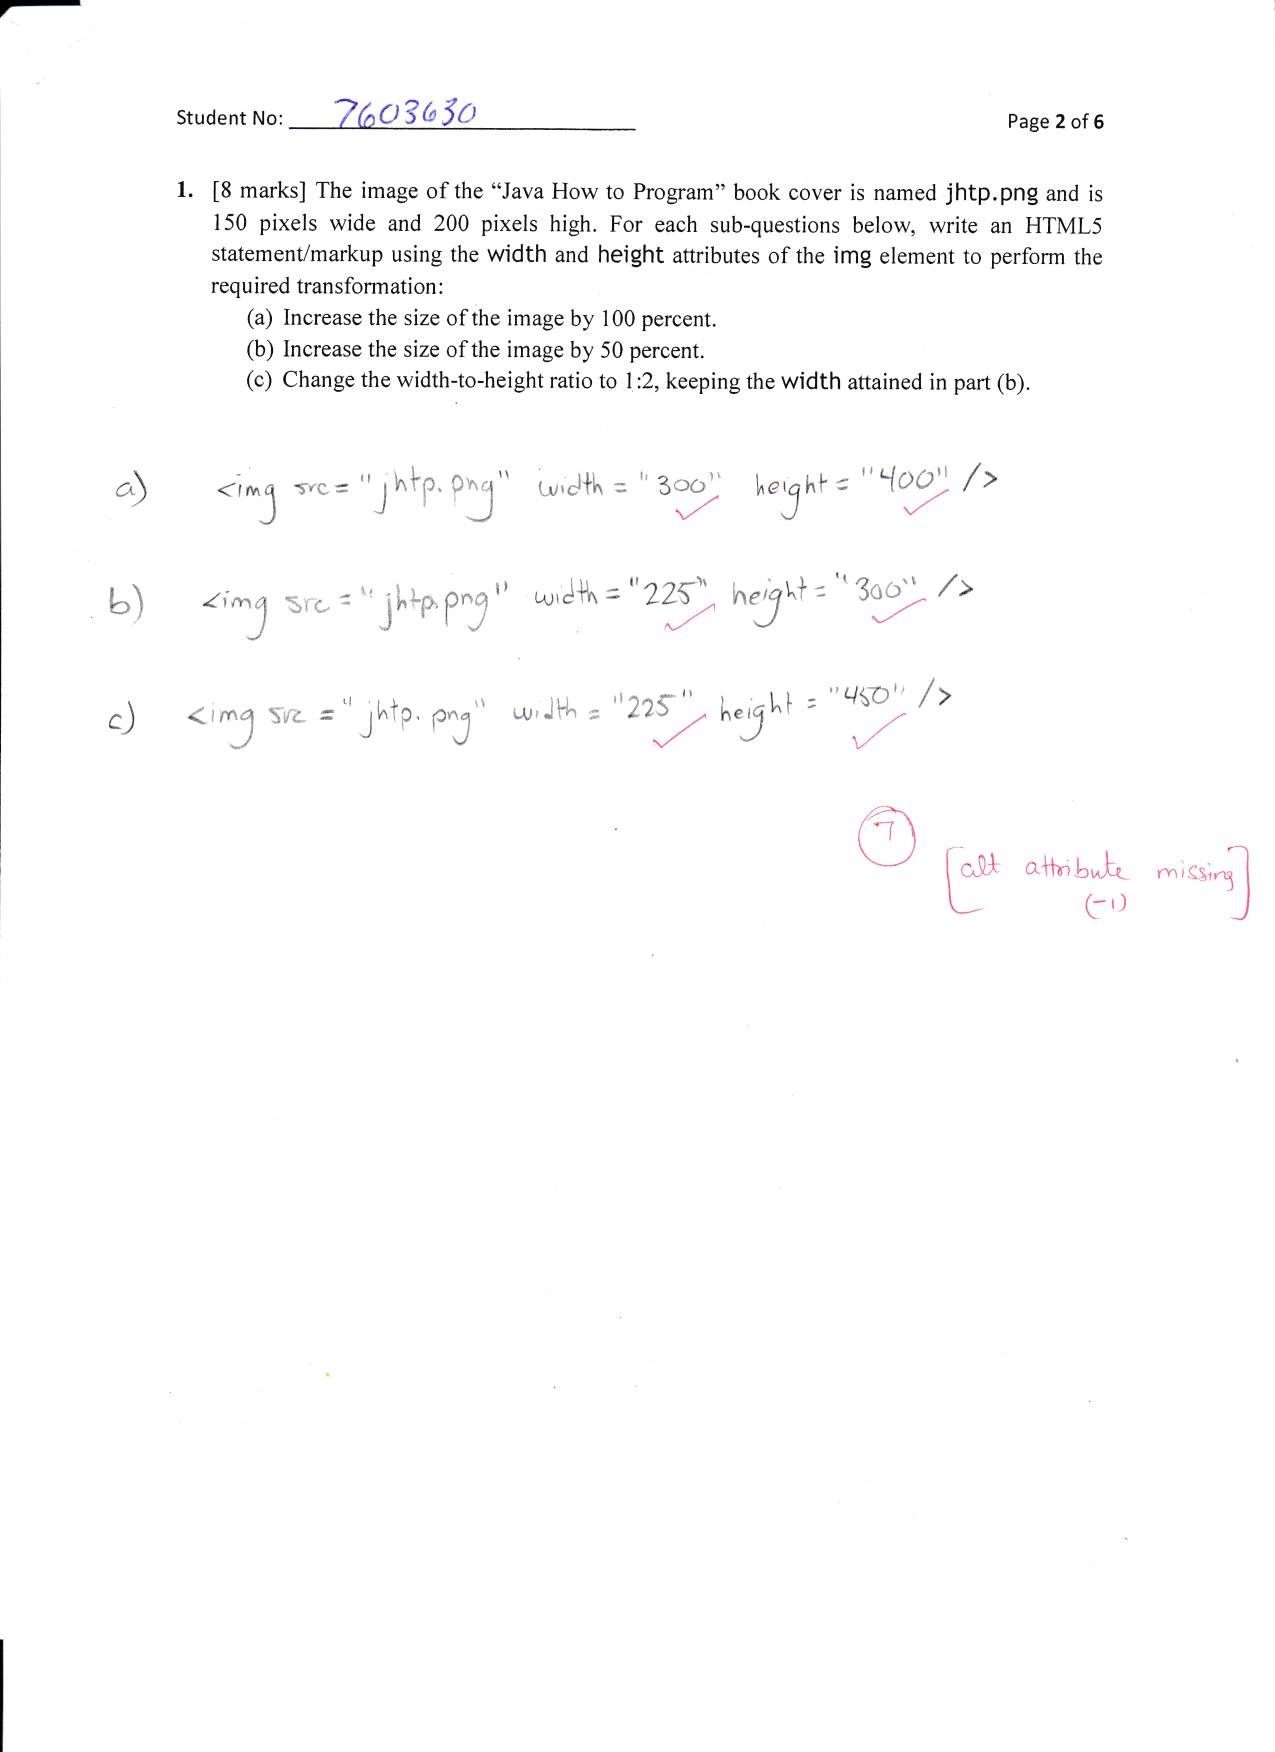 Student No: 7603630
Page 2 of 6
1. [8 marks] The image of the “Java How to Program” book cover is named jhtp.png and is
150 pixels wide and 200 pixels high. For each sub-questions below, write an HTML5
statement/markup using the width and height attributes of the img element to perform the
required transformation:
(a) Increase the size of the image by 100 percent.
(b) Increase the size of the image by 50 percent.
(c) Change the width-to-height ratio to 1:2, keeping the width attained in part (b).
a) <img src = "jhtp.png" width = "300" height = "400" />
b) <img src = "jhtp.png" width = "225" height = "300" />
c) <img src = "jhtp.png" width = "225" height = "450" />
7
[alt attribute missing]
(-1)